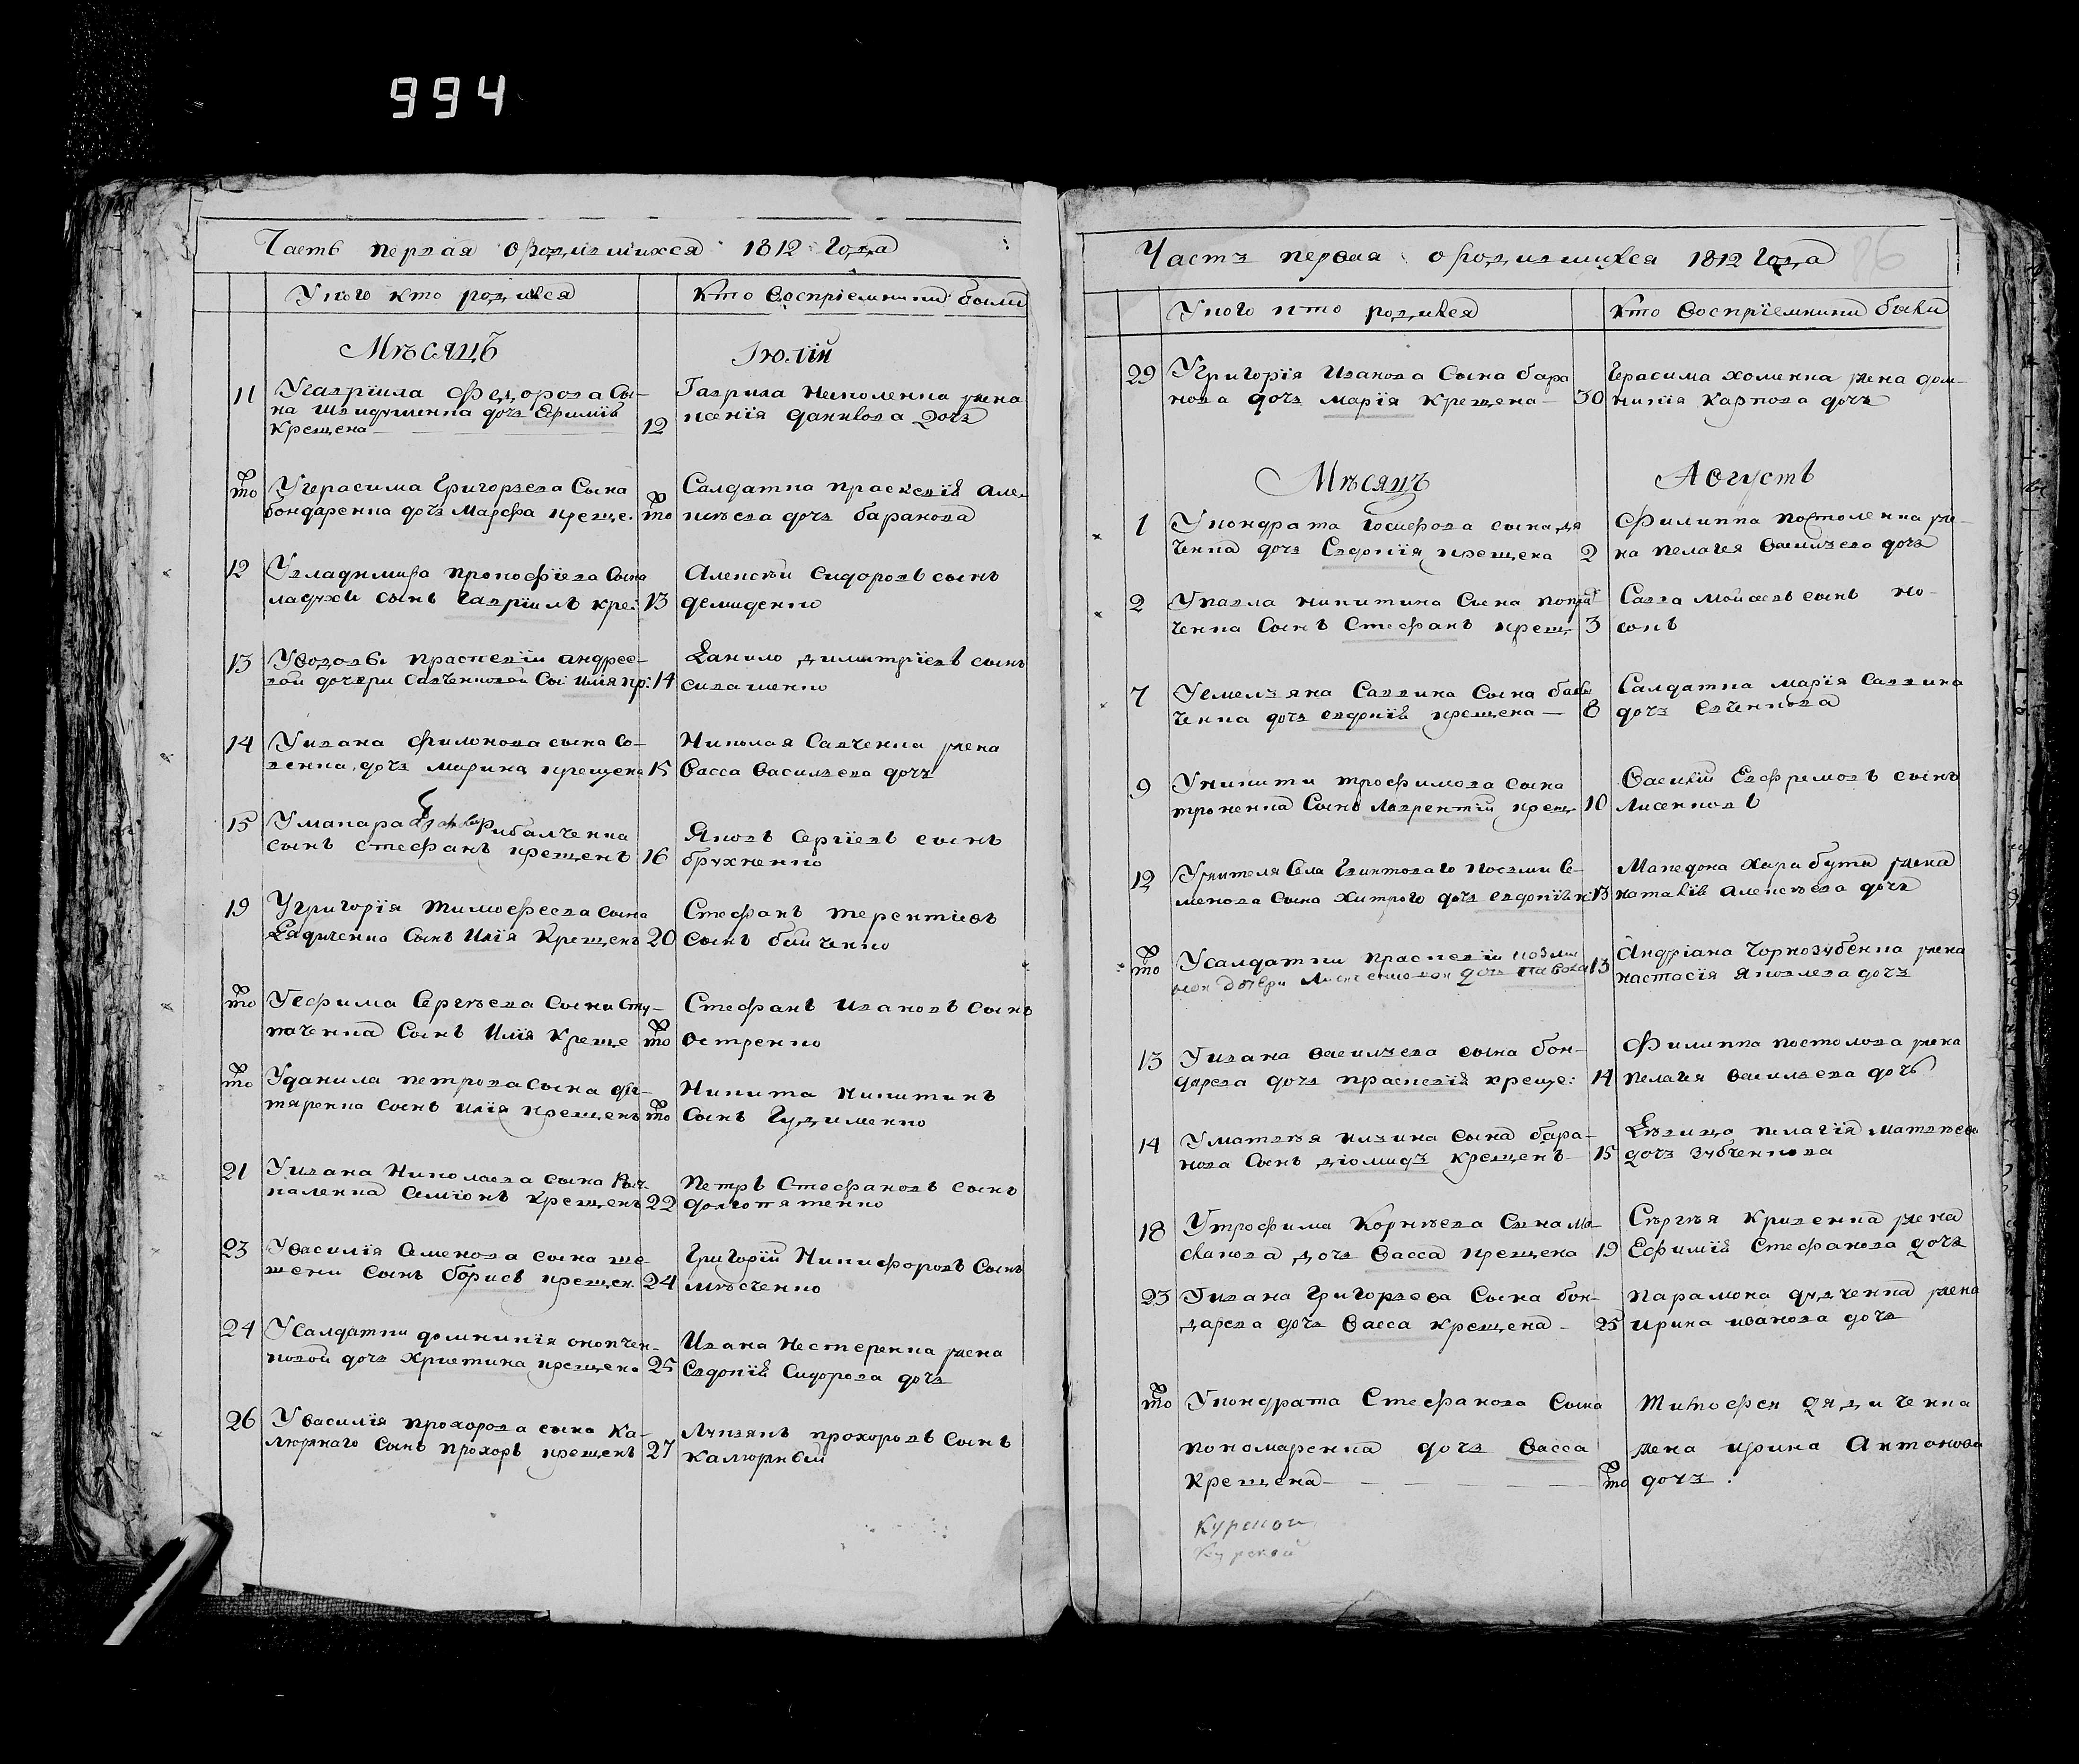 994
Часть первая о родившихся 1812 года
У кого кто родился
Кто восприемники были
Мѣсяцъ
Іюлій
11
У гавріила федорова сы-
на швидченка дочь Ефимія
Крещена
12
Гаврила николенка жена
ксенія данилова дочь
то
У герасима Григорьева сына
бондаренка дочь Марфа креще.
то
Салдатка прасковія але-
ксѣева дочь баранова
12
У владимира прокофіева сына
ладухи сынъ гавріилъ кре:
13
Алексѣй сидоровъ сынъ
демиденко
13
У вдовы прасковіи андрее-
вой дочери савченковой сы: илія кр:
14
Данило димитріевъ сынъ
сидашенко
14
У ивана филонова сына со-
венка дочь марина крещена
15
Николая Савченка жена
васса васильева дочь
15
У макара рибалченка
сынъ стефанъ крещенъ
16
Яковъ сергіевъ сынъ
брухненко
19
У григорія тимофеева сына
дядиченка сынъ илія крещенъ
20
Стефанъ терентіевъ
сынъ бойченко
то
У ефима сергѣева сына сту-
паченка сынъ илія креще
то
Стефанъ ивановъ сынъ
вотренко
то
У данила петрова сына дег-
тяренка сынъ илія крещенъ
то
Никита никитинъ
сынъ Гудименко
21
У ивана николаева сына
паленка семіонъ крещенъ
22
Петръ Стефановъ сынъ
долгопятенко
23
У василія семенова сына ше-
шени сынъ борисъ крещен.
24
Григорій Никифоровъ сынъ
мѣсченко
24
У салдатки домникія конопчен-
ковой дочь христина крещена
25
Ивана Нестеренка жена
Евдокія Сидорова дочь
26
У василія прохорова сына ка-
люжнаго сынъ прохоръ крещенъ
27
Лукіянъ прохоровъ сынъ
калюжный
Часть первая о родившихся 1812 года
86
У кого кто родился
Кто воспріемники были
29
У григорія иванова сына бара
нова дочь марія крещена
30
Герасима хоменка жена дом-
никія карпова дочь
Мѣсяцъ
Августъ
1
У кондрата Госифова сына дя
ченка дочь Евдокія крещена
2
Филиппа постоленка же-
на пелагея васильева дочь
2
У павла никитина сына
ченка сынъ Стефанъ крещ
3
Савва мойсеевъ сынъ но-
совъ
7
У емельяна Саввина сына бабы
ченка дочь евдокія крещена
8
Салдатка марія саввина
дочь евченкова
9
У никити трофимова сына
троненка сынъ лаврентій крещ
10
Василій Евфремовъ сынъ
лисенковъ
12
У жителя села гвинтоваго косьми се-
менова сына хитрого дочь евдокія к:
13
Македона харибути жена
наталія алексѣева дочь
то
У салдатки прасковіи козми
ной дочери дочь павла
13
Андріана чорнозубенка жена
настасія яковлева дочь
13
У ивана васильева сына бон-
дарева дочь прасковія креще:
14
Филиппа постолова жена
пелагея васильева дочь
14
У матвѣя ильина сына бара-
нова сынъ діомидъ крещенъ
15
Дѣвица пелагія матвѣева
дочь зубченкова
18
У трофима корнѣева сына ма-
слакова дочь васса крещена
19
Сергѣя криденка жена
Ефимія Стефанова дочь
23
У ивана григорьева сына бон-
дарева дочь васса крещена
25
парамона дядченка жена
ирина иванова дочь
то
У кондрата Стефанова сына
пономаренка дочь васса
крещена
то
Тимофея дядиченка
жена ирина антонова
дочь.
Курской
Курской